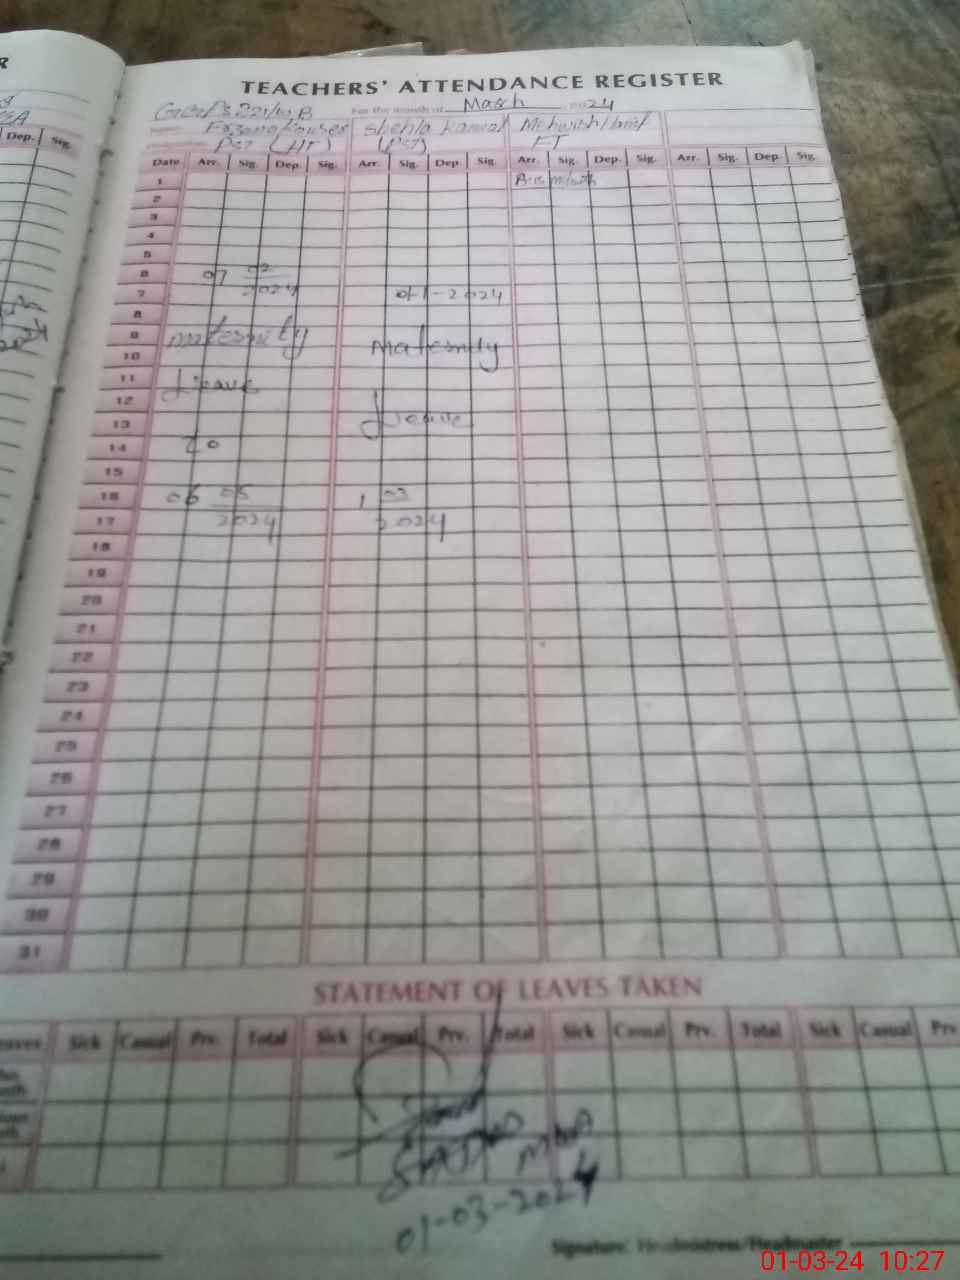 TEACHERS' ATTENDANCE REGISTER
For the month of March 2024
Name: Fozana Kouser Shehla Kanwal Mehwish Hanif
PST (HT) (PST) FT
Dep. Sig.
Date Arr. Sig. Dep. Sig. Arr. Sig. Dep. Sig. Arr. Sig. Dep. Sig. Arr. Sig. Dep. Sig.
1
2
3
4
5
6 07 02
7 2024 01-1-2024
8
9 maternity Maternity
10
11 Leave
12
13 Leave
14 To
15
16 06 05 1 03
17 2024 2024
18
19
20
21
22
23
24
25
26
27
28
29
30
31
STATEMENT OF LEAVES TAKEN
Sick Casual Prv. Total Sick Casual Prv. Total Sick Casual Prv. Total Sick Casual Prv
MEA
01-03-2024
Signature: Headmistress/Headmaster
01-03-24 10:27